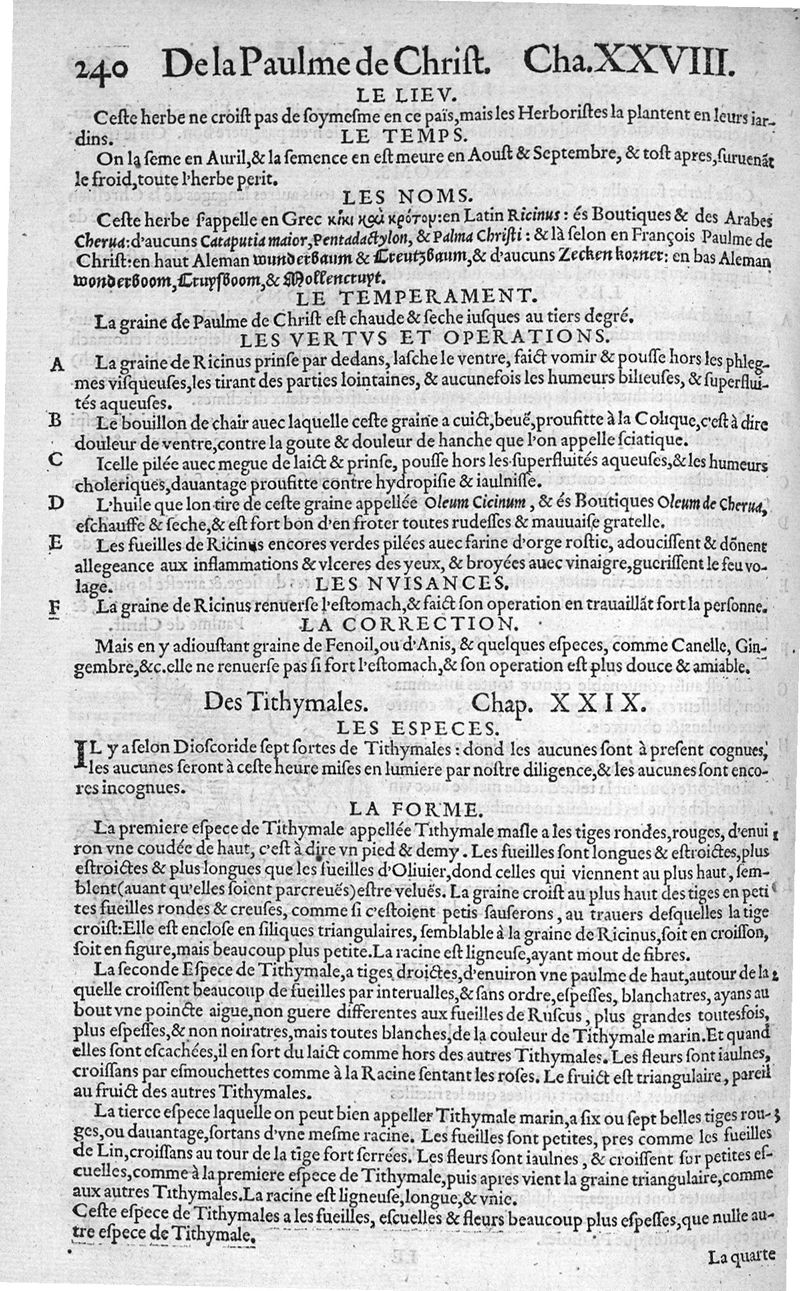 240 De la Paulme de Christ. Cha. XXVIII.
LE LIEV.
Ceſte herbe ne croiſt pas de ſoymeſme en ce païs, mais les Herboriſtes la plantent en leurs iar-
dins. LE TEMPS.
On la ſeme en Auril, & la ſemence en eſt meure en Aouſt & Septembre, & toſt apres, ſuruenãt
le froid, toute l'herbe perit.
LES NOMS.
Ceſte herbe s'appelle en Grec κίκι καὶ κρότομ: en Latin Ricinus: és Boutiques & des Arabes
Cherua: d'aucuns Cataputia maior, Pentadactylon, & Palma Chriſti: & là ſelon en François Paulme de
Chriſt: en haut Aleman wunderbaum & Creutzbaum, & d'aucuns Zecken korner: en bas Aleman
wonderboom, Cruyſboom, & Mollencruyt.
LE TEMPERAMENT.
La graine de Paulme de Chriſt eſt chaude & ſeche iuſques au tiers degré.
LES VERTVS ET OPERATIONS.
A La graine de Ricinus prinſe par dedans, laſche le ventre, faict vomir & pouſſe hors les phleg-
mes viſqueuſes, les tirant des parties lointaines, & aucunefois les humeurs bilieuſes, & ſuperflui-
tés aqueuſes.
B Le bouillon de chair auec laquelle ceſte graine a cuict, beuë, proufitte à la Colique, c'eſt à dire
douleur de ventre, contre la goute & douleur de hanche que l'on appelle ſciatique.
C Icelle pilée auec megue de laict & prinſe, pouſſe hors les ſuperfluités aqueuſes, & les humeurs
choleriques, dauantage proufitte contre hydropiſie & iaulniſſe.
D L'huile que lon tire de ceſte graine appellée Oleum Cicinum, & és Boutiques Oleum de Cherua,
eſchauffe & ſeche, & eſt fort bon d'en froter toutes rudeſſes & mauuaiſe gratelle.
E Les fueilles de Ricinus encores verdes pilées auec farine d'orge roſtie, adouciſſent & dõnent
allegeance aux inflammations & vlceres des yeux, & broyées auec vinaigre, gueriſſent le feu vo-
lage. LES NVISANCES.
F La graine de Ricinus renuerſe l'eſtomach, & faict ſon operation en trauaillãt fort la perſonne.
LA CORRECTION.
Mais en y adiouſtant graine de Fenoil, ou d'Anis, & quelques eſpeces, comme Canelle, Gin-
gembre, &c. elle ne renuerſe pas ſi fort l'eſtomach, & ſon operation eſt plus douce & amiable.
Des Tithymales. Chap. XXIX.
LES ESPECES.
IL y a ſelon Dioſcoride ſept ſortes de Tithymales: dond les aucunes ſont à preſent cognues,
les aucunes ſeront à ceſte heure miſes en lumiere par noſtre diligence, & les aucunes ſont enco-
res incognues.
LA FORME.
La premiere eſpece de Tithymale appellée Tithymale maſle a les tiges rondes, rouges, d'enui 1
ron vne coudée de haut, c'eſt à dire vn pied & demy. Les fueilles ſont longues & eſtroictes, plus
eſtroictes & plus longues que les fueilles d'Oliuier, dond celles qui viennent au plus haut, ſem-
blent (auant qu'elles ſoient parcreuës) eſtre veluës. La graine croiſt au plus haut des tiges en peti
tes fueilles rondes & creuſes, comme ſi c'eſtoient petis ſauſerons, au trauers deſquelles la tige
croiſt: Elle eſt encloſe en ſiliques triangulaires, ſemblable à la graine de Ricinus, ſoit en croiſſon,
ſoit en figure, mais beaucoup plus petite. La racine eſt ligneuſe, ayant mout de fibres.
La ſeconde Eſpece de Tithymale, a tiges droictes, d'enuiron vne paulme de haut, autour de la 2
quelle croiſſent beaucoup de fueilles par interualles, & ſans ordre, eſpeſſes, blanchatres, ayans au
bout vne poincte aigue, non guere differentes aux fueilles de Ruſcus, plus grandes toutesfois,
plus eſpeſſes, & non noiratres, mais toutes blanches, de la couleur de Tithymale marin. Et quand
elles ſont eſcachées, il en ſort du laict comme hors des autres Tithymales. Les fleurs ſont iaulnes,
croiſſans par eſmouchettes comme à la Racine ſentant les roſes. Le fruict eſt triangulaire, pareil
au fruict des autres Tithymales.
La tierce eſpece laquelle on peut bien appeller Tithymale marin, a ſix ou ſept belles tiges rou- 3
ges, ou dauantage, ſortans d'vne meſme racine. Les fueilles ſont petites, pres comme les fueilles
de Lin, croiſſans au tour de la tige fort ſerrées. Les fleurs ſont iaulnes, & croiſſent ſur petites eſ-
cuelles, comme à la premiere eſpece de Tithymale, puis apres vient la graine triangulaire, comme
aux autres Tithymales. La racine eſt ligneuſe, longue, & vnie.
Ceſte eſpece de Tithymales a les fueilles, eſcuelles & fleurs beaucoup plus eſpeſſes, que nulle au-
tre eſpece de Tithymale.
La quarte